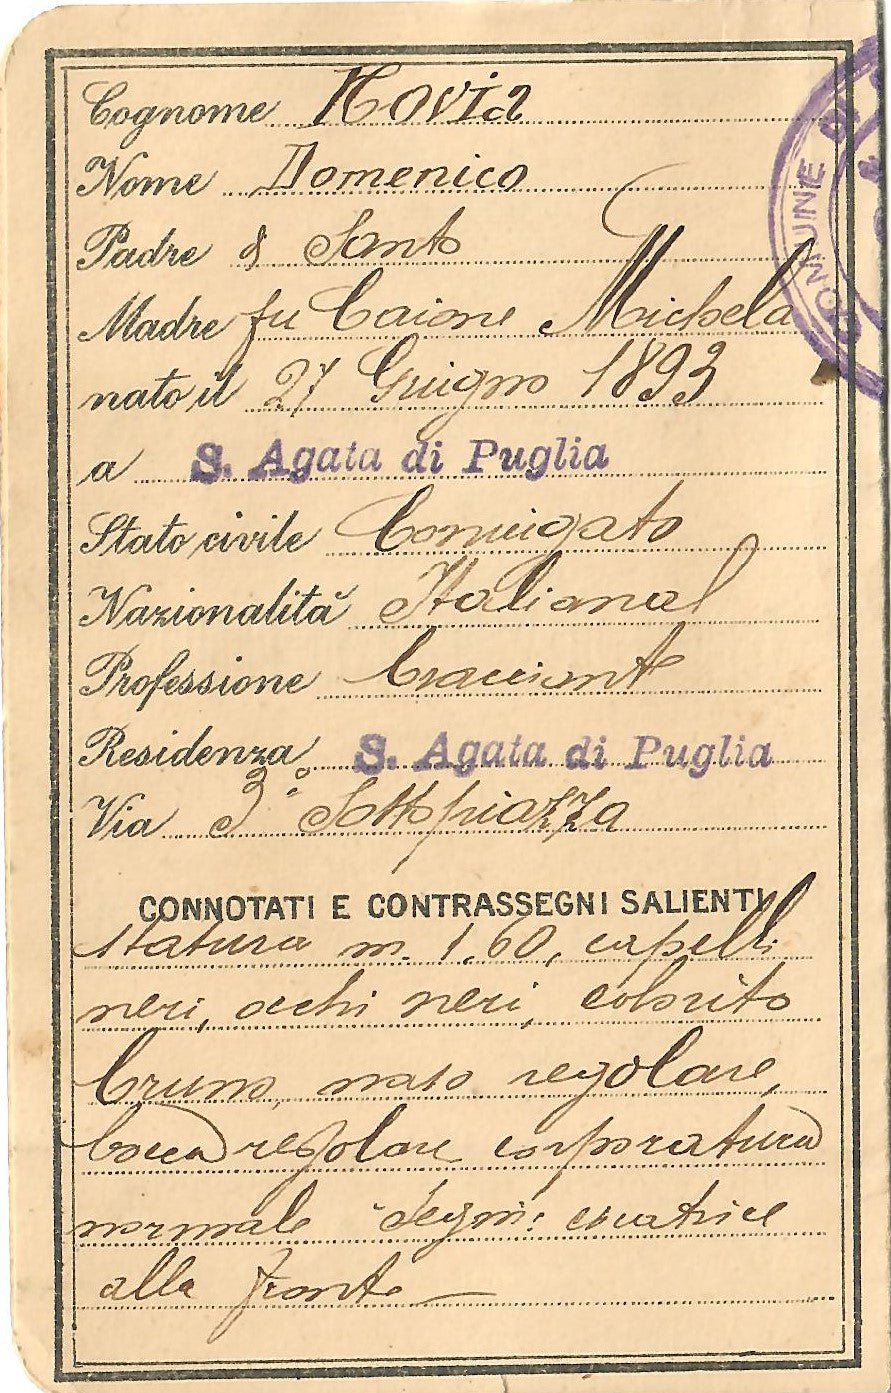 Cognome Novia
Nome Domenico
Padre di Santo
Madre fu Caione Michela
nato il 27 Giugno 1893
a S. Agata di Puglia
Stato civile Coniugato
Nazionalità Italiana
Professione bracciante
Residenza S. Agata di Puglia
Via 3° Sottopiazza
CONNOTATI E CONTRASSEGNI SALIENTI
statura m. 1,60, capelli
neri, occhi neri, colorito
bruno, naso regolare,
bocca regolare corporatura
normale Segni: cicatrice
alla fronte
COMUNE